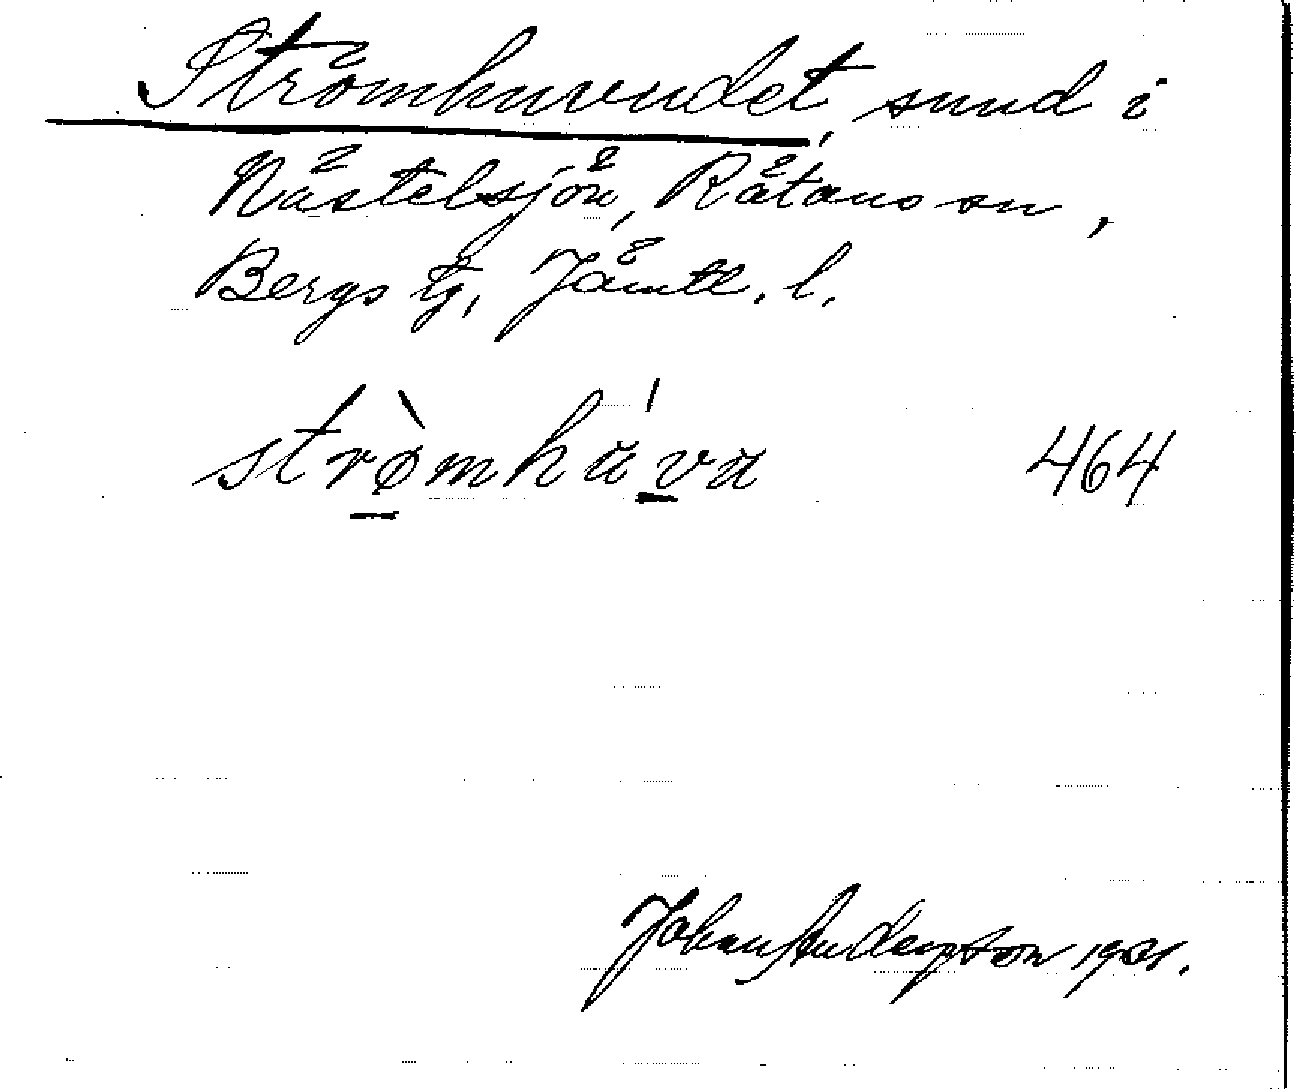 Strömhuvudet, sund i
Nästelsjön, Rätans sn,
Bergs tg, Jämtl. l.
strø̀mhä́vä 464
Johan Anderson 1931.